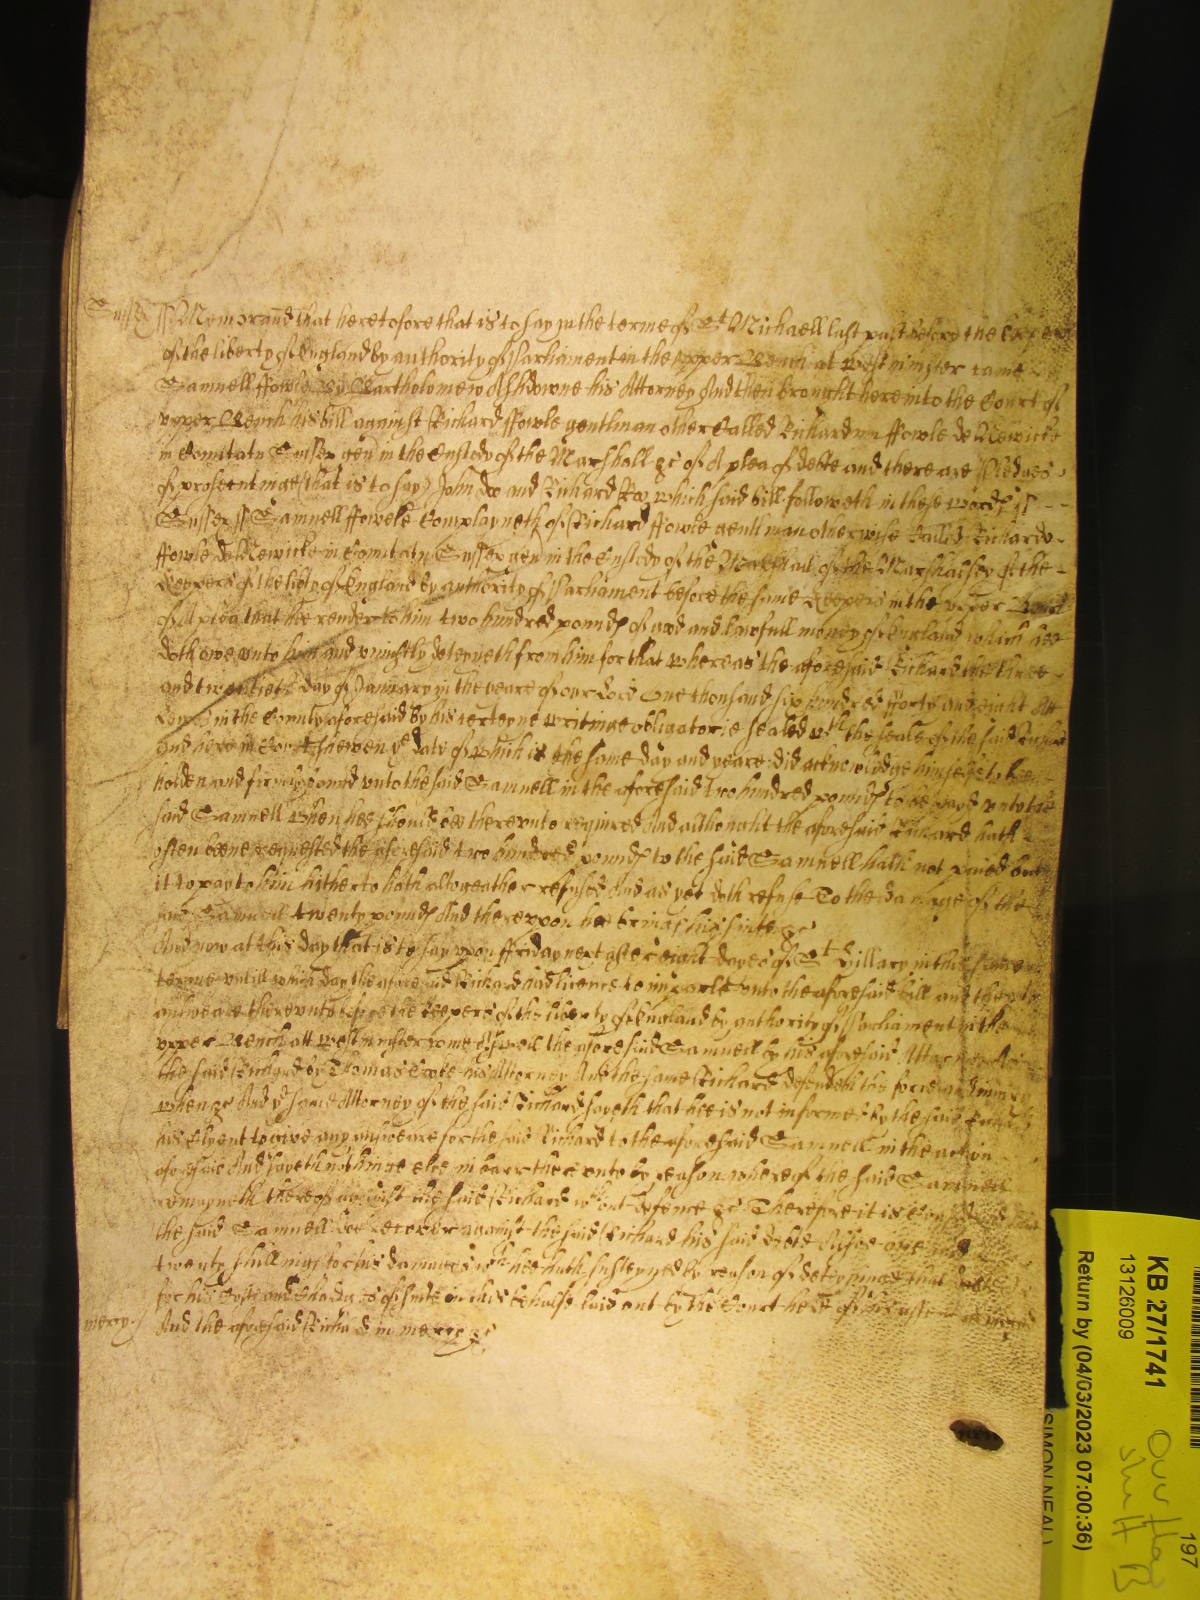 Sussex ss Memorand that heretofore that is to say in the terme of St Michaell last past before the keepers
of the liberty of England by authority of Parliament in the upper Bench at Westminster came
Samuell ffowle by Bartholomew Ashdowne his Attorney And then brought here into the Court of
upper Bench his bill against Richard ffowle gentlman other Called Richardum ffowle de Newicke
in Comitatu Sussex gen in the Custody of the Marshall &c of A plea of debte and there are Pledges
of prosecutinge (that is to say) John doe and Richard Roe which said bill followeth in these words ss
Sussex ss Samuell ffowle Complayneth of Richard ffowle gentlman otherwise Called Richardu
ffowle de Newicke in Comitatu Sussex gen in the Custody of the Marshall of the Marshalsey of the
Keepers of the libty of England by authority of Parliament before the same Keepers in the upper Bench
of A plea that hee render to him two hundred pounds of good and lawfull money of England which hee
doth owe unto him and uniustly deteyneth from him for that whereas the aforesaid Richard the three
and twentieth day of January in the yeare of our Lord One thousand six hundred fforty and eight Att
in the County aforesaid by his certeyne writinge obligatorie sealed wth the seale of the said Richard
and here in Court shewen ye date of which is the same day and yeare did acknowledge himselfe to be
holden and firmly bound unto the said Samuell in the aforesaid two hundred pounds to be payd unto the
said Samuell when hee should bee thereunto required And although the aforesaid Richard hath
often beene requested the aforesaid two hundred pounds to the said Samuell hath not paied but
it to pay to him hitherto hath altogeather refused And as yet doth refuse To the damage of the
said Samuell twenty pounds And thereupon hee brings his suite &c
And now at this day that is to say upon ffriday next after eight dayes of St Hillary in this same
terme untill which day the aforesaid Richard had licence to imparle unto the aforesaid bill and then to
answeare thereunto before the keepers of the liberty of England by authority of Parliament in the
upper Bench att Westminster come Aswell the aforesaid Samuell by his aforesaid Attorney As
the said Richard by Thomas his Attorney And the same Richard defendeth the force and iniury
when &c And ye same Attorney of the said Richard sayeth that hee is not informed by the said Richard
his Clyent to give any answeare for the said Richard to the aforesaid Samuell in the action
aforesaid And sayeth nothinge else in barr thereunto by reason whereof the said Samuell
remayneth thereof against the said Richard wthout defence &c Therefore it is Considered that
the said Samuell doe recover against the said Richard his said debte And
twenty shillings for his damages wch hee hath susteyned by reason of deteyninge that debte
for his Costs and Charges of suite in this behalfe laid out by the Court here of his assent
mercy And the aforesaid Richard in mercy &c
KB 27/1741
13126009
Return by (04/03/2023 07:00:36)
SIMON NEAL)
197